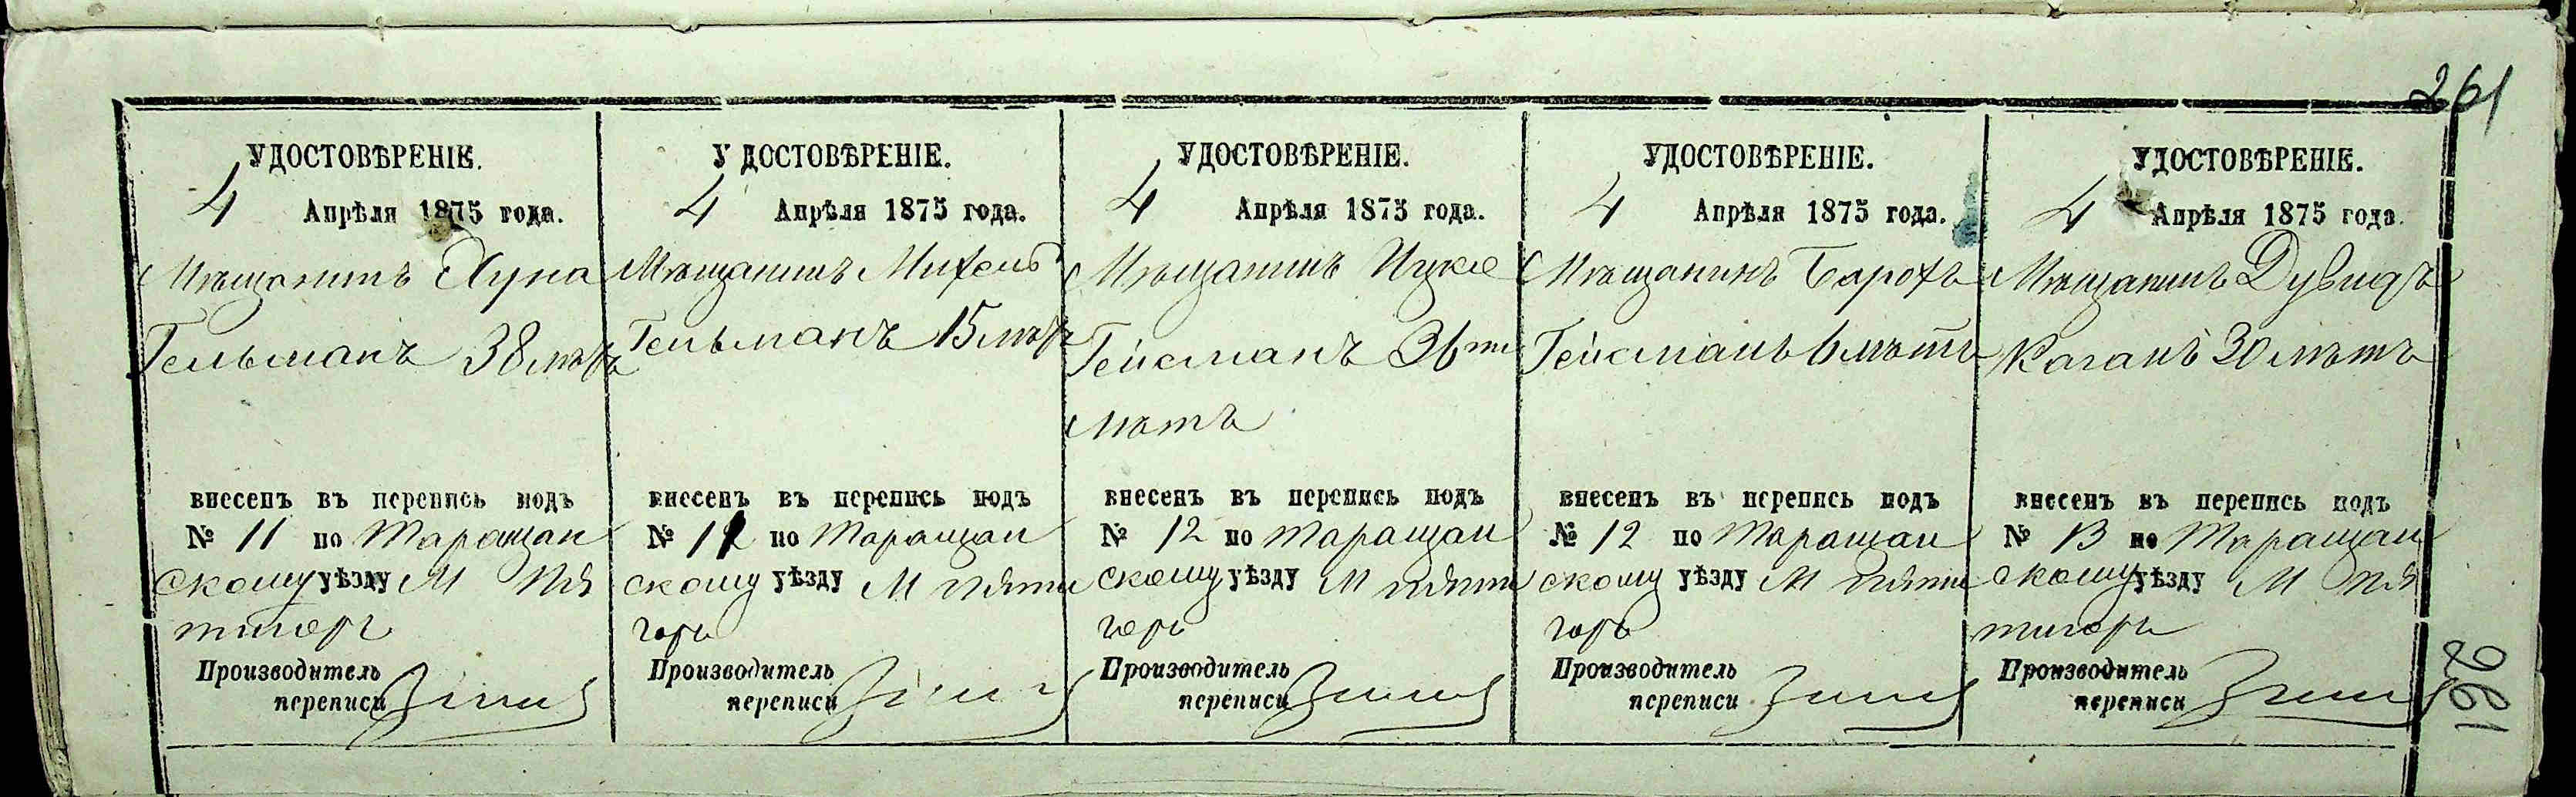 261
УДОСТОВѢРЕНІЕ.
4 Апрѣля 1875 года.
Мѣщанинъ Хуна
Гельманъ 38 лѣтъ
внесенъ въ перепись подъ
№ 11 по Таращан
скому уѣзду М Пя
тигоръ
Производитель
переписи
УДОСТОВѢРЕНІЕ.
4 Апрѣля 1875 года.
Мѣщанинъ Михель
Гельманъ 15 лѣтъ
внесенъ въ перепись подъ
№ 11 по Таращан
скому уѣзду М Пяти
горъ
Производитель
переписи
УДОСТОВѢРЕНІЕ.
4 Апрѣля 1875 года.
Мѣщанинъ Ицко
Гейсманъ 36ти
лѣтъ
внесенъ въ перепись подъ
№ 12 по Таращан
скому уѣзду М Пяти
горъ
Производитель
переписи
УДОСТОВѢРЕНІЕ.
4 Апрѣля 1875 года.
Мѣщанинъ Борохъ
Гейсманъ 6 лѣтъ
внесенъ въ перепись подъ
№ 12 по Таращан
скому уѣзду М Пяти
горъ
Производитель
переписи
УДОСТОВѢРЕНІЕ.
4 Апрѣля 1875 года.
Мѣщанинъ Дувидъ
Каганъ 30 лѣтъ
внесенъ въ перепись подъ
№ 13 по Таращан
скому уѣзду М Пя
тигоръ
Производитель
переписи